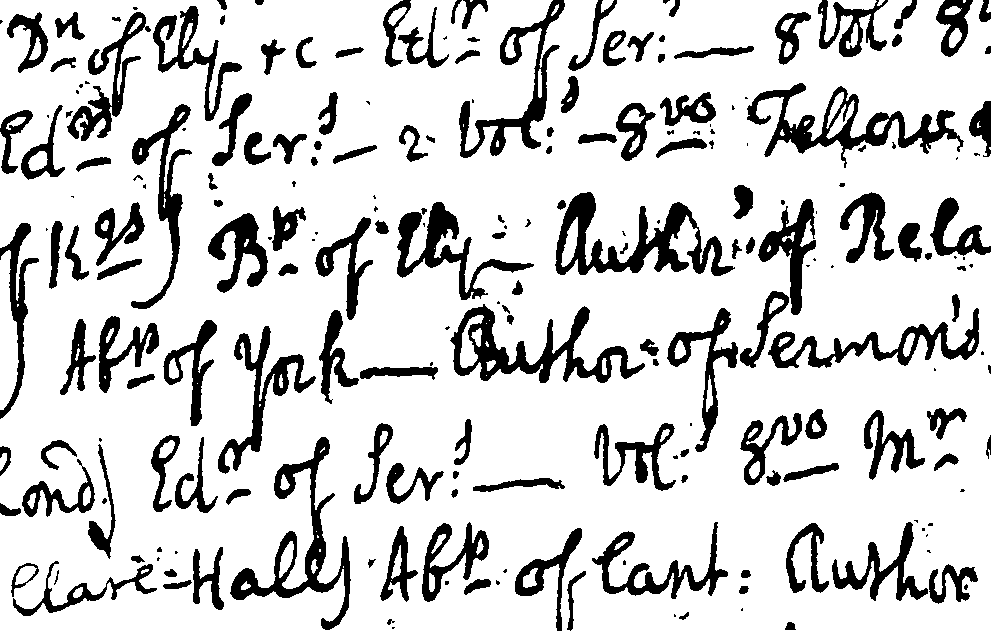 Dn of Ely &c – Edr of Ser: — 8 Vol: 8
Edr of Ser:s — 2 Vol:s – 8vo Fellow
of Kgs) Bp of Ely — Author of Rela
) Abp of York — Author of Sermons
Lond) Edr of Ser:s — Vol:s 8vo Mr
Clare-Hall) Abp of Cant: Author